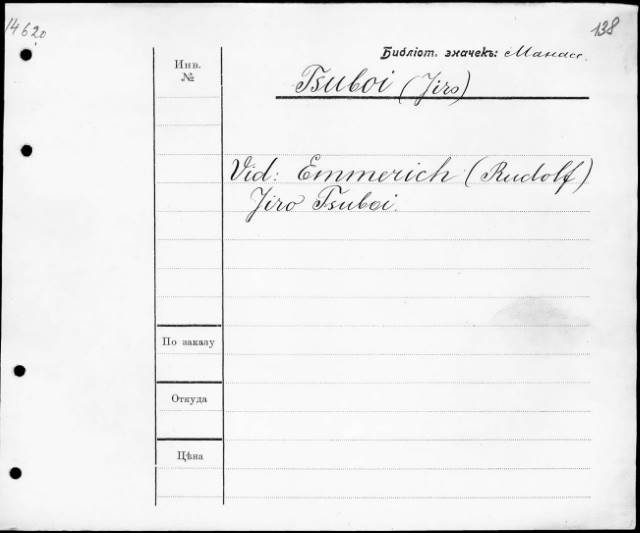 14620
138
Инв.
№
Библіот. значекъ: Манасс.
Tsuboi (Jiro)
Vid: Emmerich (Rudolf)
Jiro Tsuboi.
По заказу
Откуда
Цѣна